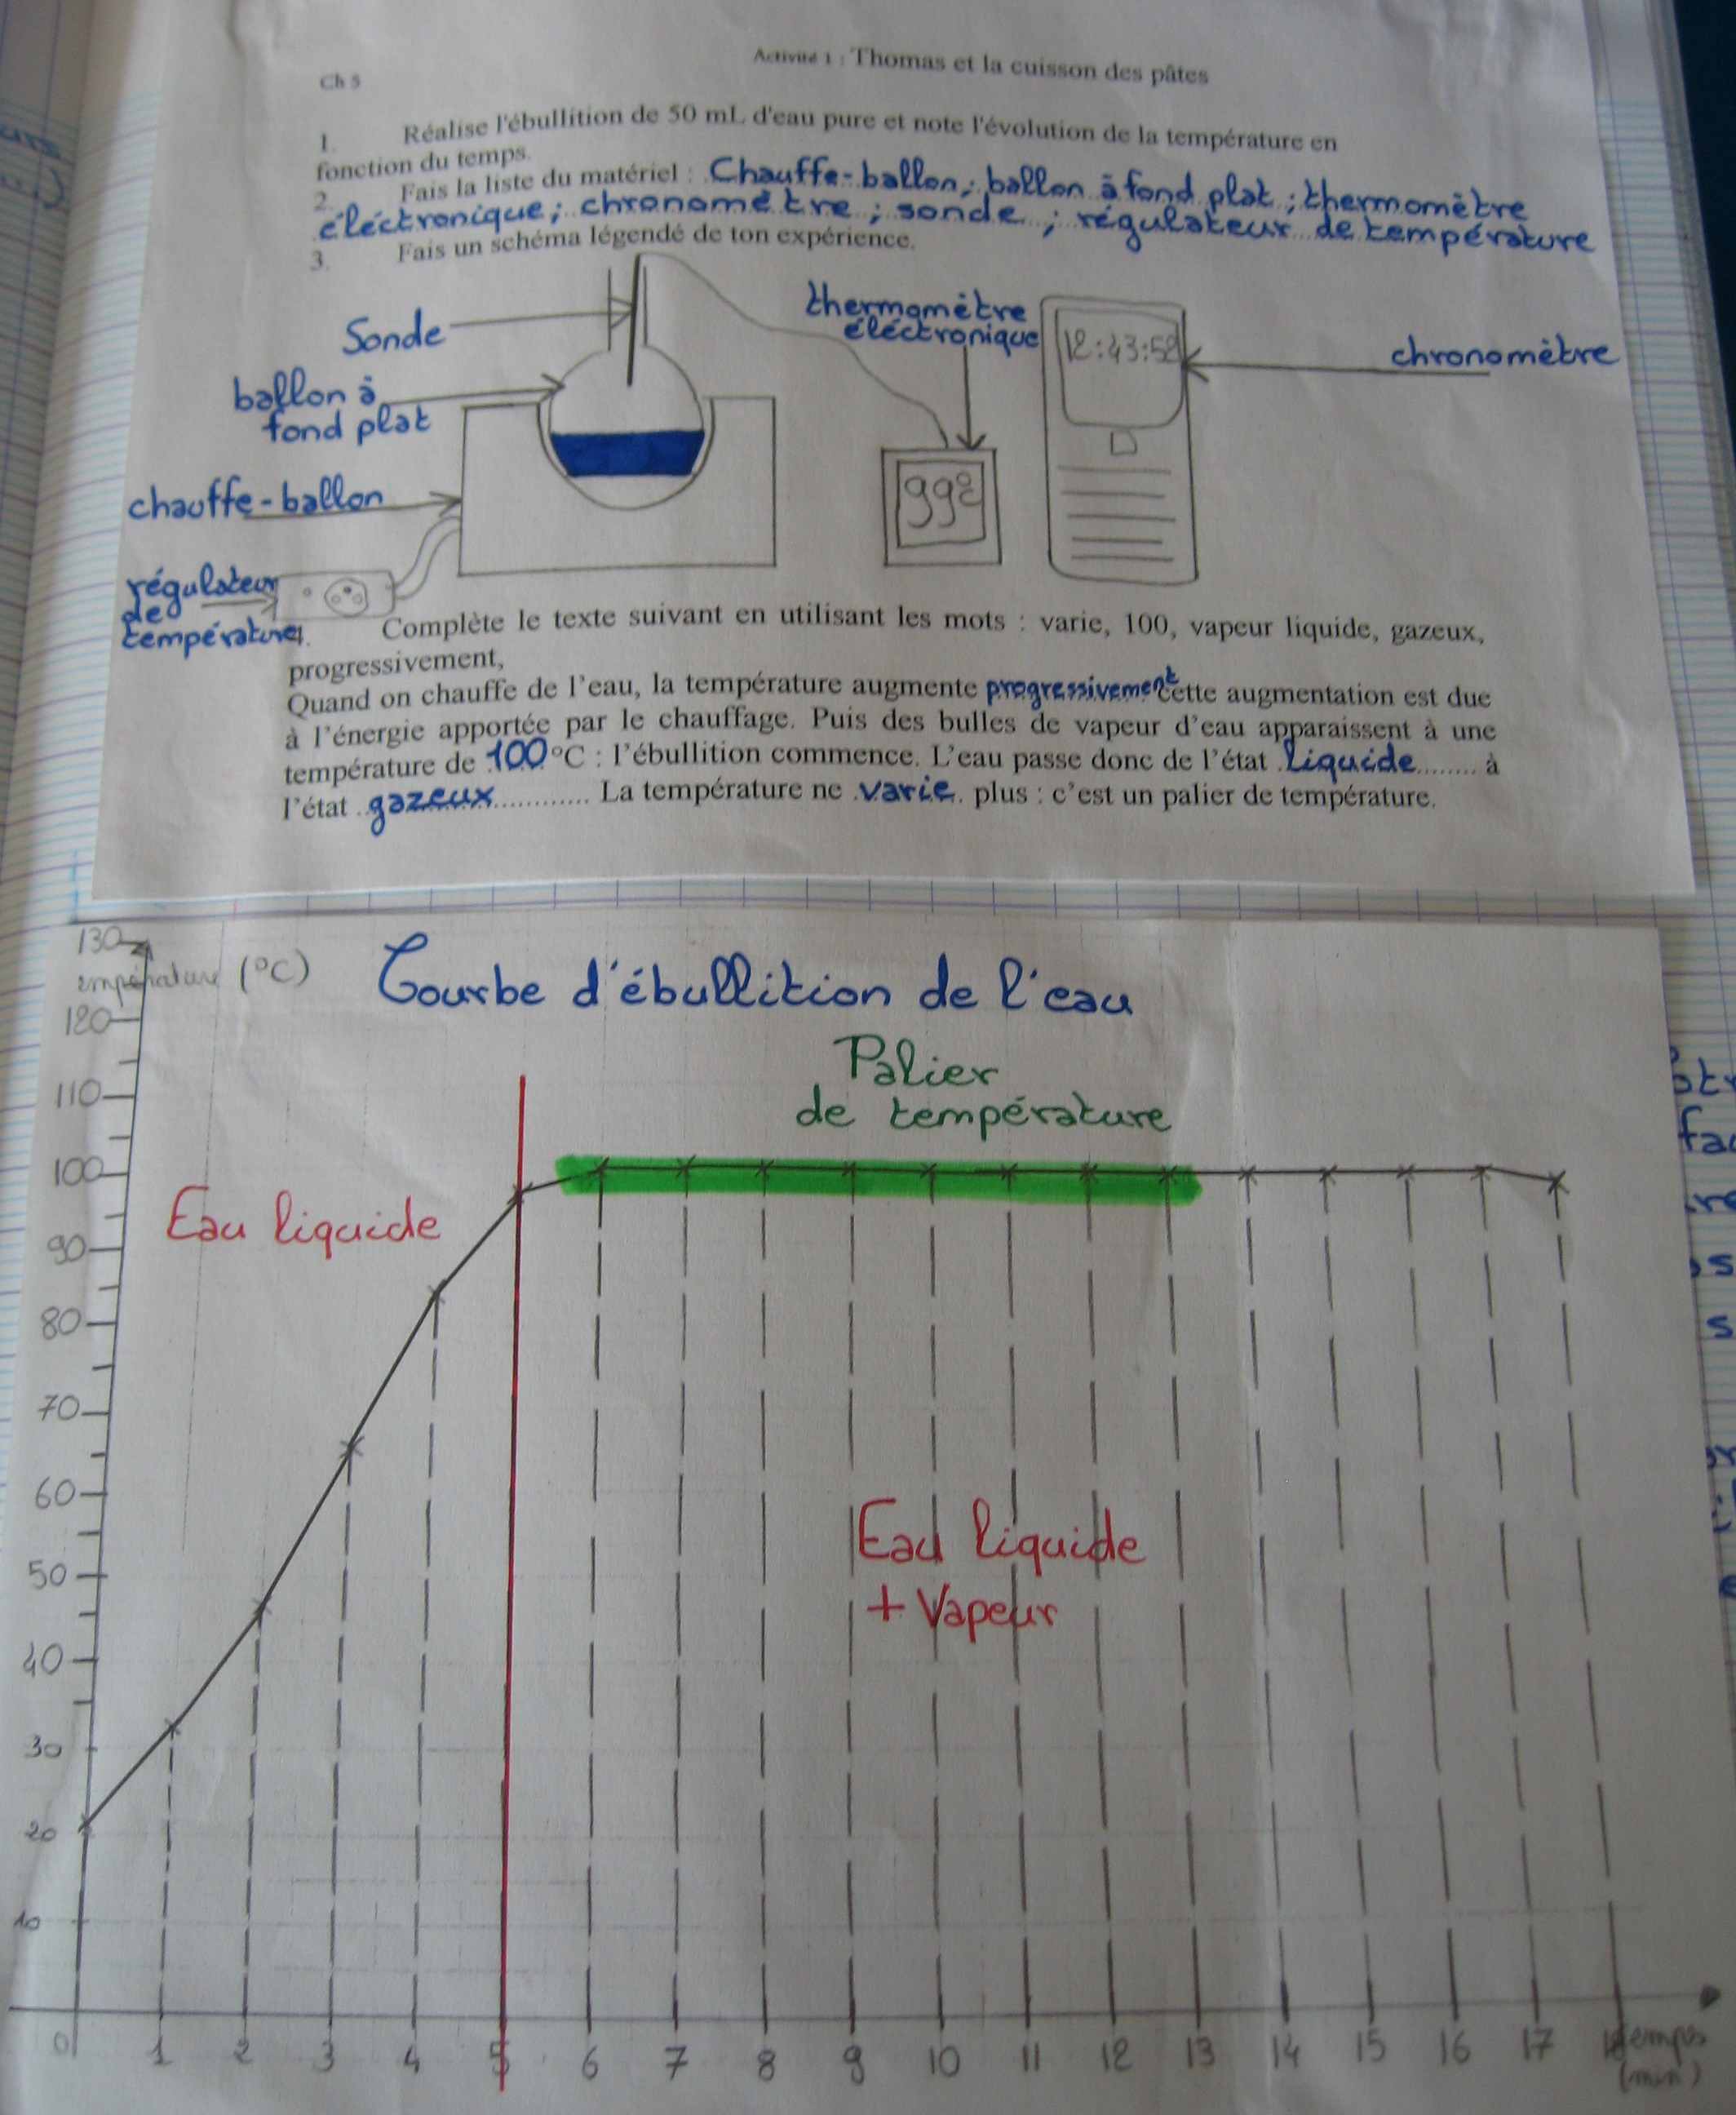 Ch 5
Activité 1 : Thomas et la cuisson des pâtes
1. Réalise l'ébullition de 50 mL d'eau pure et note l'évolution de la température en
fonction du temps.
2. Fais la liste du matériel : Chauffe-ballon; ballon à fond plat ; thermomètre
éléctronique; chronomètre ; sonde ; régulateur de température
3. Fais un schéma légendé de ton expérience.
Sonde
thermomètre
éléctronique
12:43:52
chronomètre
ballon à
fond plat
99°C
chauffe-ballon
régulateur
de
température
4. Complète le texte suivant en utilisant les mots : varie, 100, vapeur liquide, gazeux,
progressivement,
Quand on chauffe de l'eau, la température augmente progressivement cette augmentation est due
à l'énergie apportée par le chauffage. Puis des bulles de vapeur d'eau apparaissent à une
température de 100 °C : l'ébullition commence. L'eau passe donc de l'état liquide........ à
l'état ..gazeux............. La température ne .varie. plus : c'est un palier de température.
130
température (°C)
Courbe d'ébullition de l'eau
120
Palier
de température
110
100
Eau liquide
90
80
70
60
Eau liquide
+ Vapeur
50
40
30
20
10
0 1 2 3 4 5 6 7 8 9 10 11 12 13 14 15 16 17 18
temps
(min)